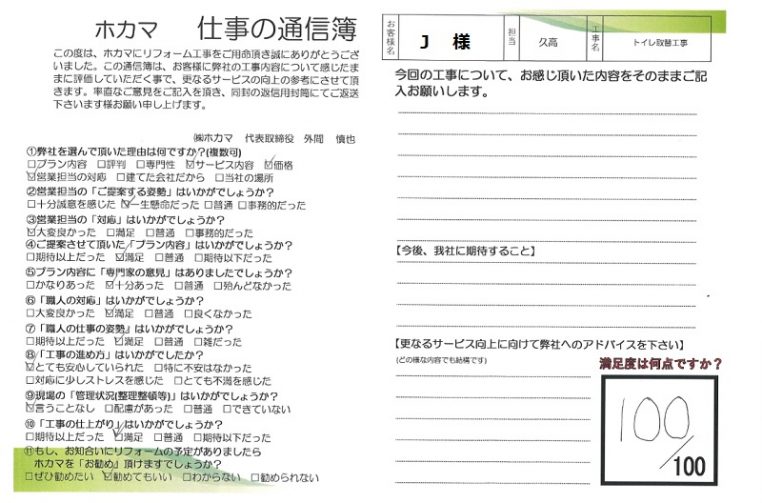 ホカマ　仕事の通信簿
この度は、ホカマにリフォーム工事をご用命頂き誠にありがとうござ
いました。この通信簿は、お客様に弊社の工事内容について感じたま
まに評価していただく事で、更なるサービスの向上の参考にさせて頂
きます。率直なご意見をご記入を頂き、同封の返信用封筒にてご返送
下さいます様お願い申し上げます。
㈱ホカマ　代表取締役　外間　慎也
①弊社を選んで頂いた理由は何ですか?(複数可)
□プラン内容 □評判 □専門性 ☑サービス内容 ☑価格
☑営業担当の対応 □建てた会社だから □当社の場所
②営業担当の「ご提案する姿勢」はいかがでしょうか？
□十分誠意を感じた ☑一生懸命だった □普通 □事務的だった
③営業担当の「対応」はいかがでしょうか？
☑大変良かった □満足 □普通 □事務的だった
④ご提案させて頂いた「プラン内容」はいかがでしょうか？
□期待以上だった ☑満足 □普通 □期待以下だった
⑤プラン内容に「専門家の意見」はありましたでしょうか？
□かなりあった ☑十分あった □普通 □殆んどなかった
⑥「職人の対応」はいかがでしょうか？
□大変良かった ☑満足 □普通 □良くなかった
⑦「職人の仕事の姿勢」はいかがでしょうか？
□期待以上だった ☑満足 □普通 □雑だった
⑧「工事の進め方」はいかがでしたか？
☑とても安心していられた □特に不安はなかった
□対応に少しストレスを感じた □とても不満を感じた
⑨現場の「管理状況(整理整頓等)」はいかがでしょうか？
☑言うことなし □配慮があった □普通 □できていない
⑩「工事の仕上がり」はいかがでしょうか？
□期待以上だった ☑満足 □普通 □期待以下だった
⑪もし、お知合いにリフォームの予定がありましたら
ホカマを「お勧め」頂けますでしょうか？
□ぜひ勧めたい ☑勧めてもいい □わからない □勧められない
お客様名 J 様 担当 久高 工事名 トイレ取替工事
今回の工事について、お感じ頂いた内容をそのままご記
入お願いします。
【今後、我社に期待すること】
【更なるサービス向上に向けて弊社へのアドバイスを下さい】
(どの様な内容でも結構です)
満足度は何点ですか？
100
/100